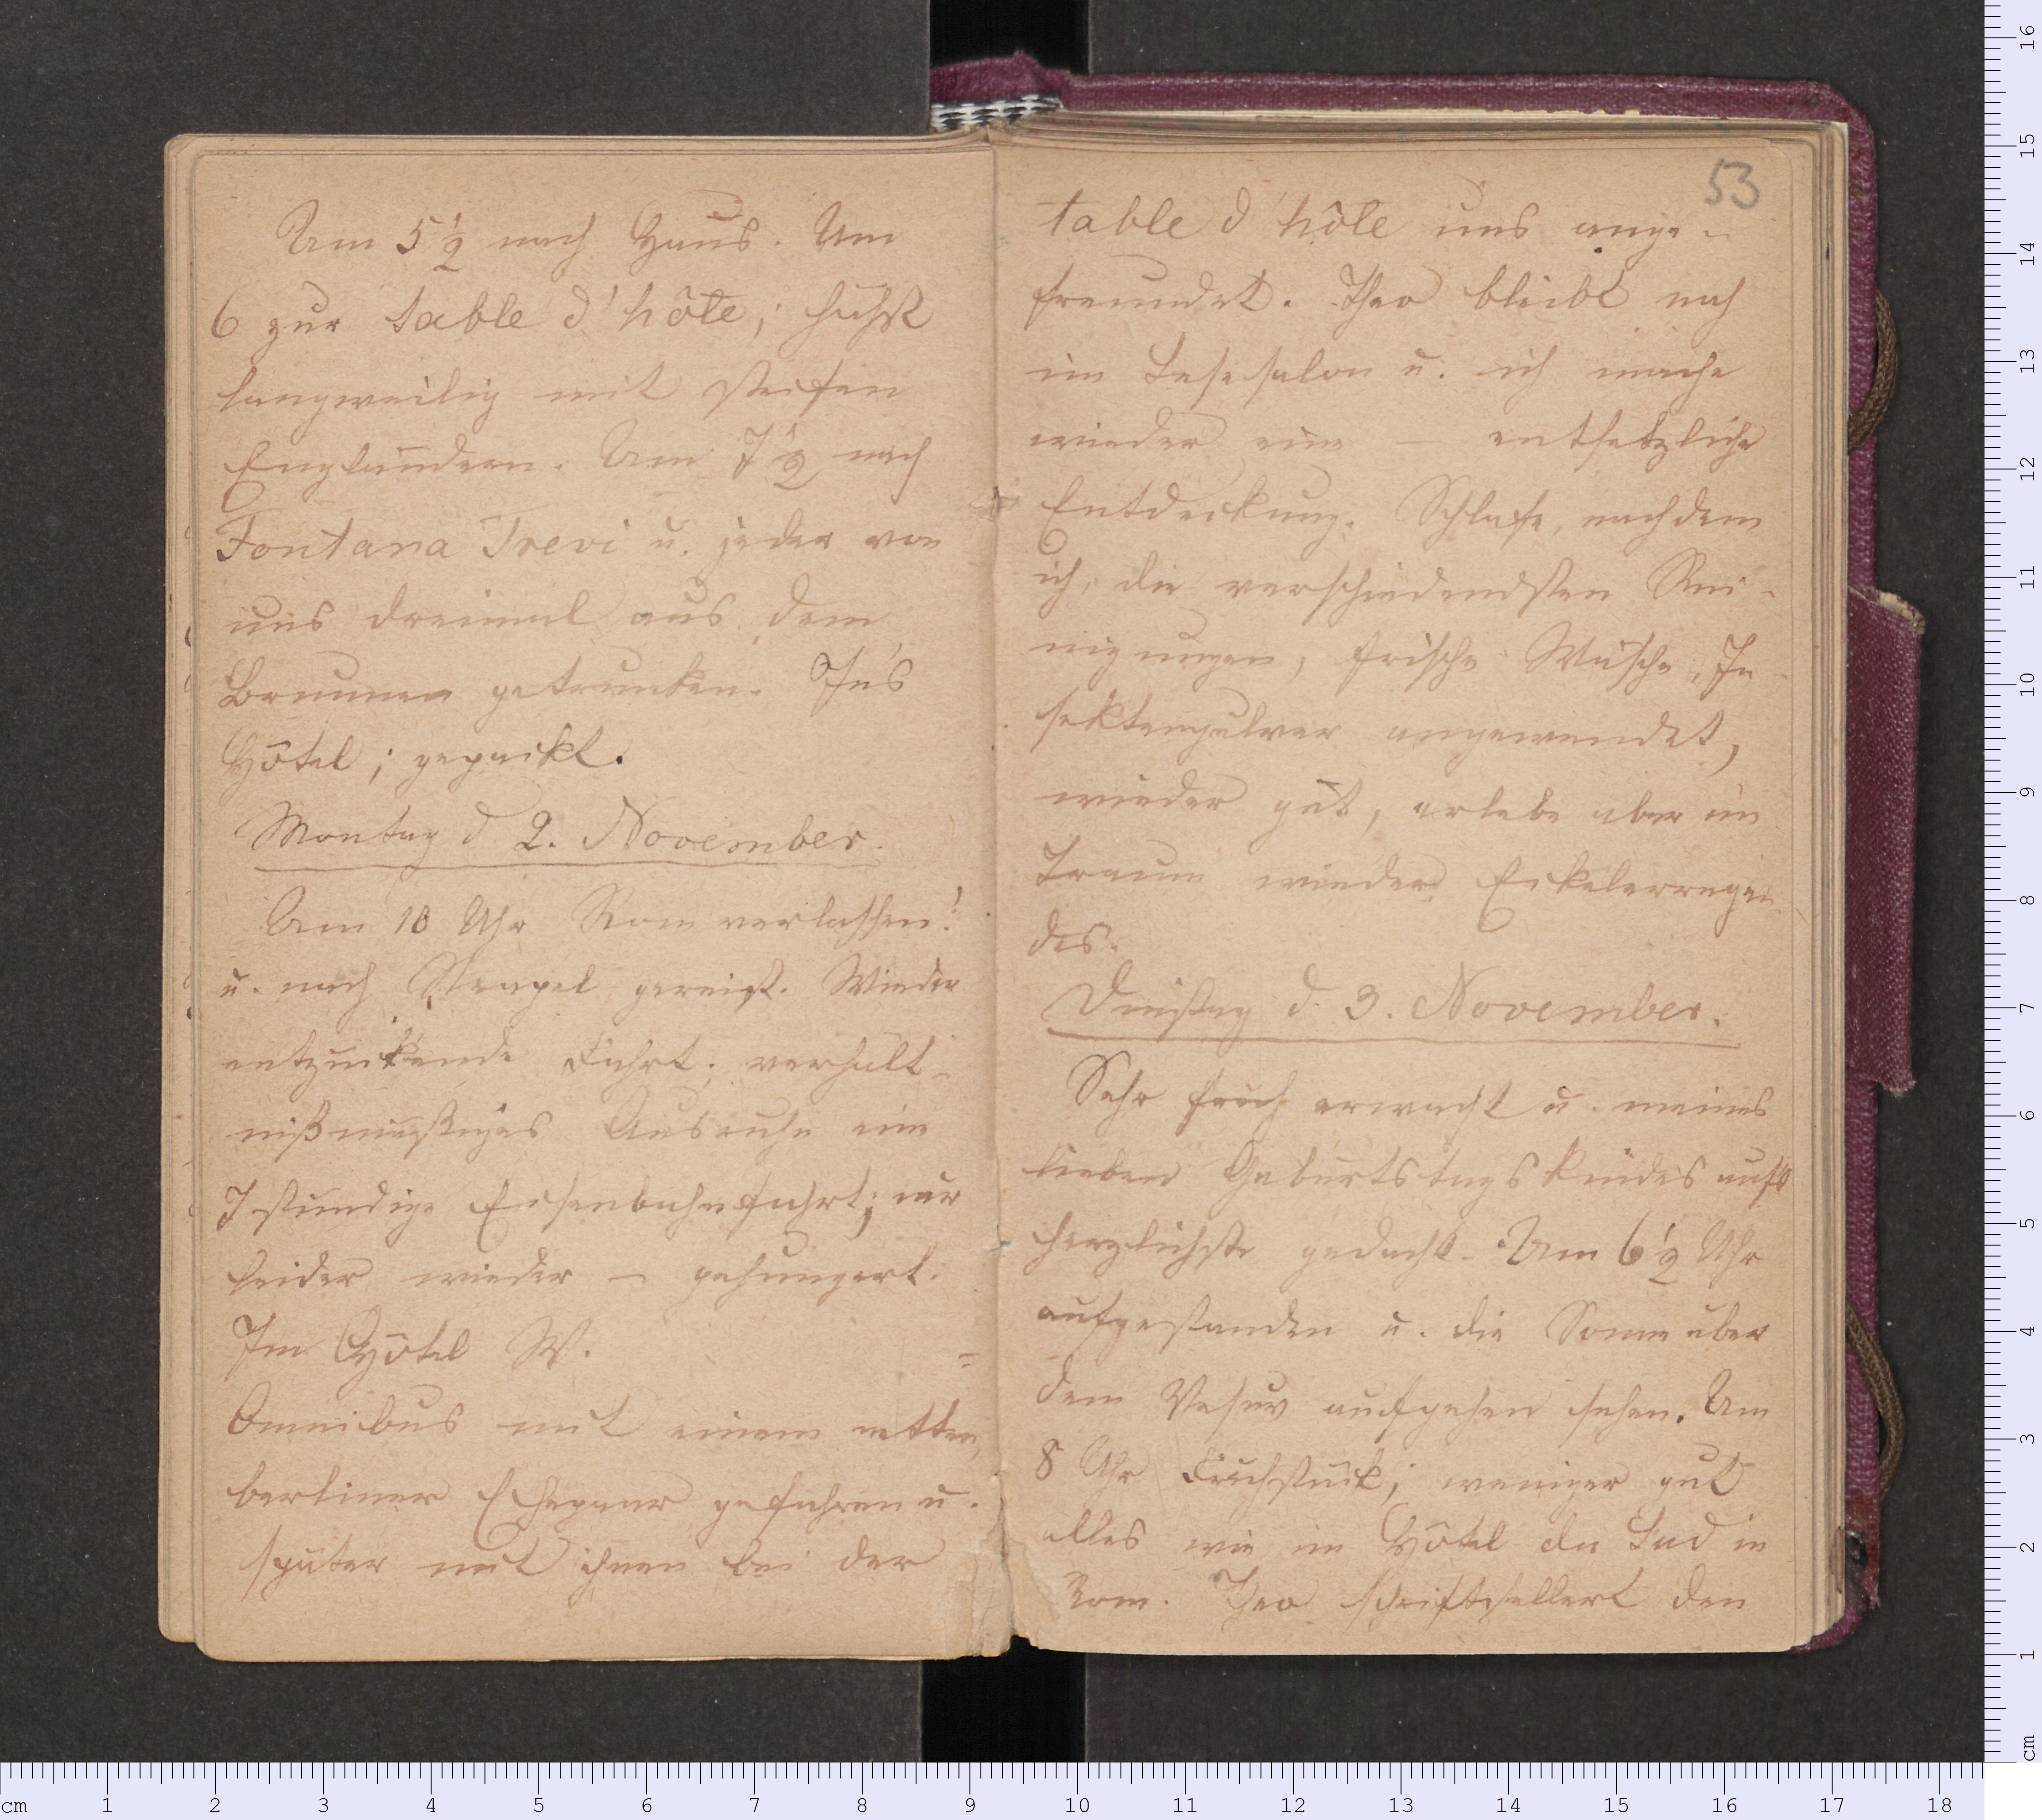 Um 5 1/2 nach Haus. Um
6 zur table d'hôte; höchst
langweilig mit steifen
Engländern. Um 7 1/2 nach
Fontana Trevi u. jeder von
uns dreimal aus dem
Brunnen getrunken. Ins
Hôtel; gepackt.
Montag d 2. November.
Um 10 Uhr Rom verlassen!
u. nach Neapel gereist. Wieder
entzückende Fahrt; verhält-
nißmäßiges
7 stündige Eisenbahnfahrt; nur
leider wieder – gehungert.
Im Hôtel W.
Omnibus mit einem netten,
berliner Ehepaar gefahren u.
später mit ihnen bei der
53
table d'hôte uns ange-
freundet. Theo bleibt noch
im Lesesalon u. ich mache
wieder eine – entsetzliche
Entdeckung. Schlafe, nachdem
ich, die verschiedendsten Rei-
nigungen, frische Wäsche, In-
sektenpulver angewendet,
wieder gut, erlebe aber im
Traum wieder Eckelerregen
des.
Dinstag d. 3. November.
Sehr früh erwacht u. meines
lieben Geburtstagskindes aufs
herzlichste gedacht. Um 6 1/2 Uhr
aufgestanden u. die Sonne über
dem Vesuv aufgehen sehen. Um
8 Uhr Früchstück; weniger gut
alles wie im Hôtel du Sud in
Rom. Theo schriftsellert den